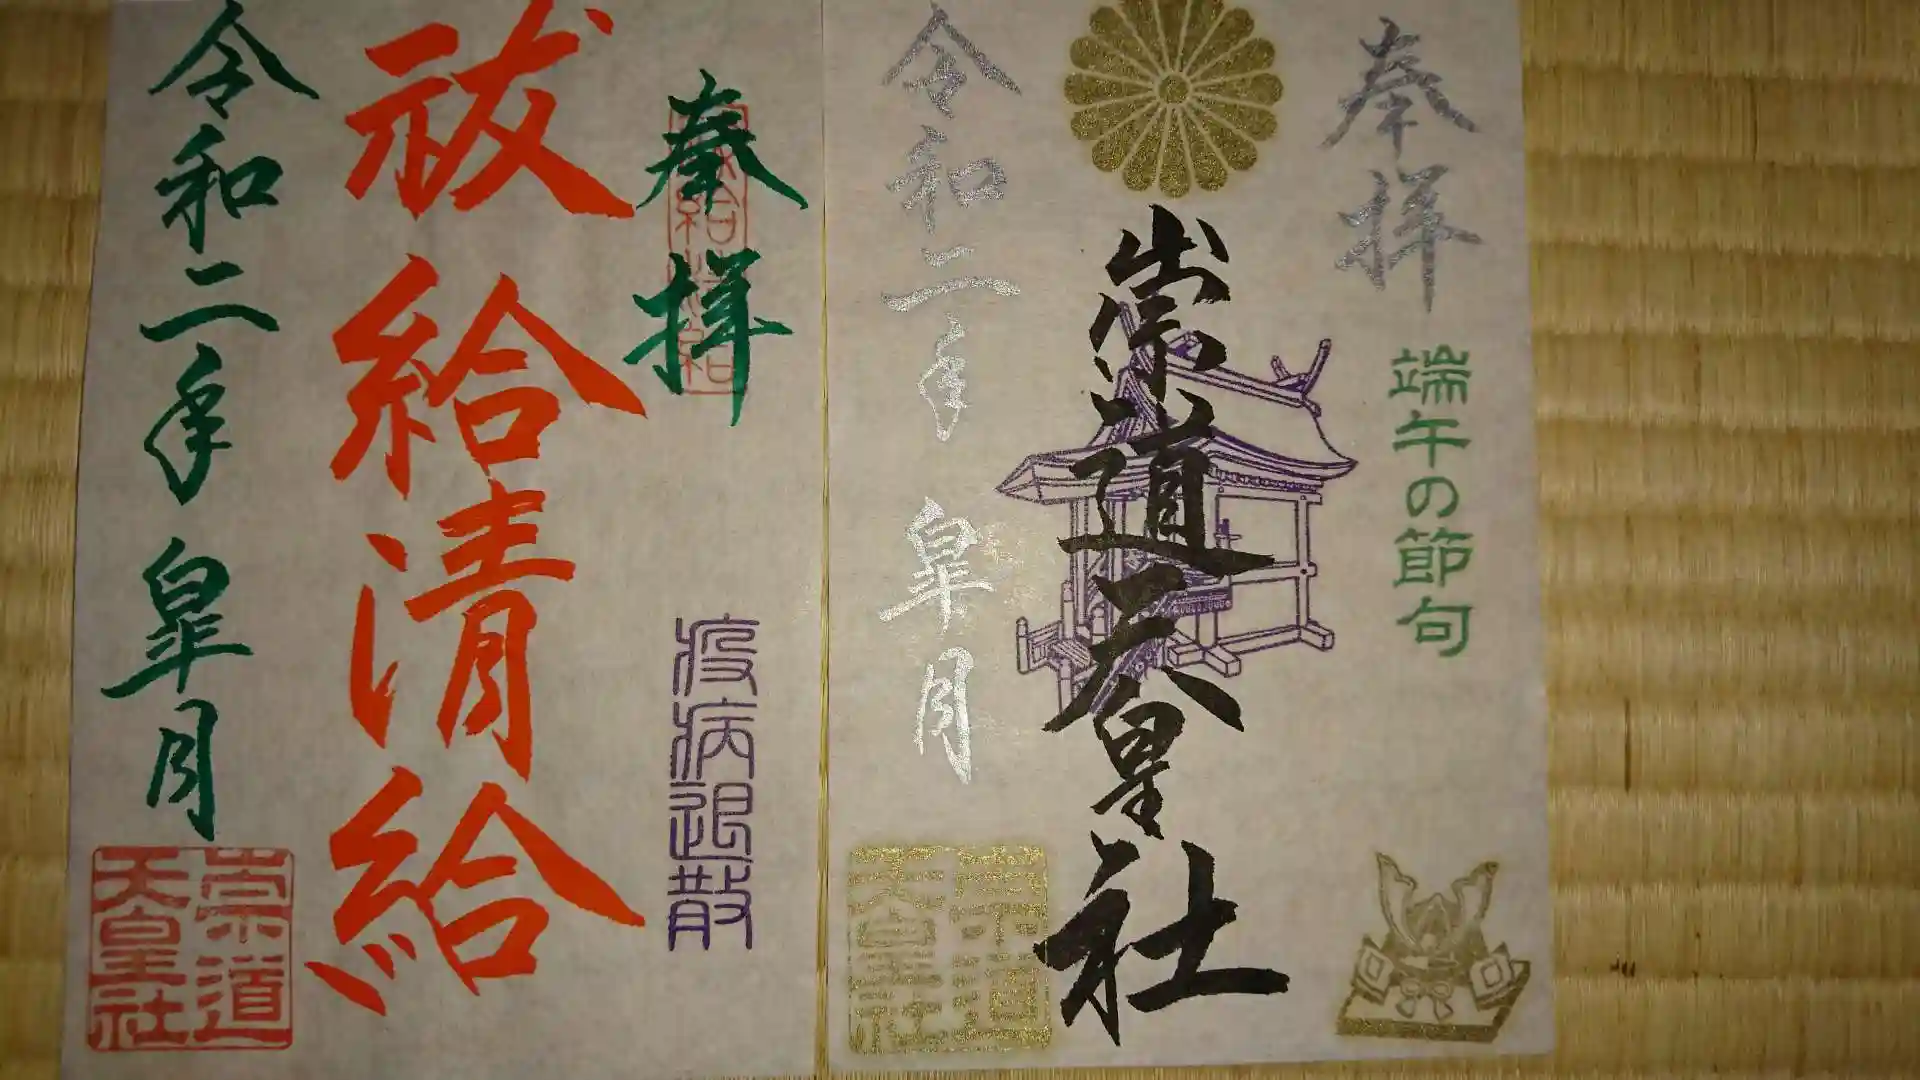 奉拝
端午の節句
崇道天皇社
令和二年 皐月
崇道
天皇社
奉拝
疫病退散
祓給清給
令和二年 皐月
崇道
天皇社